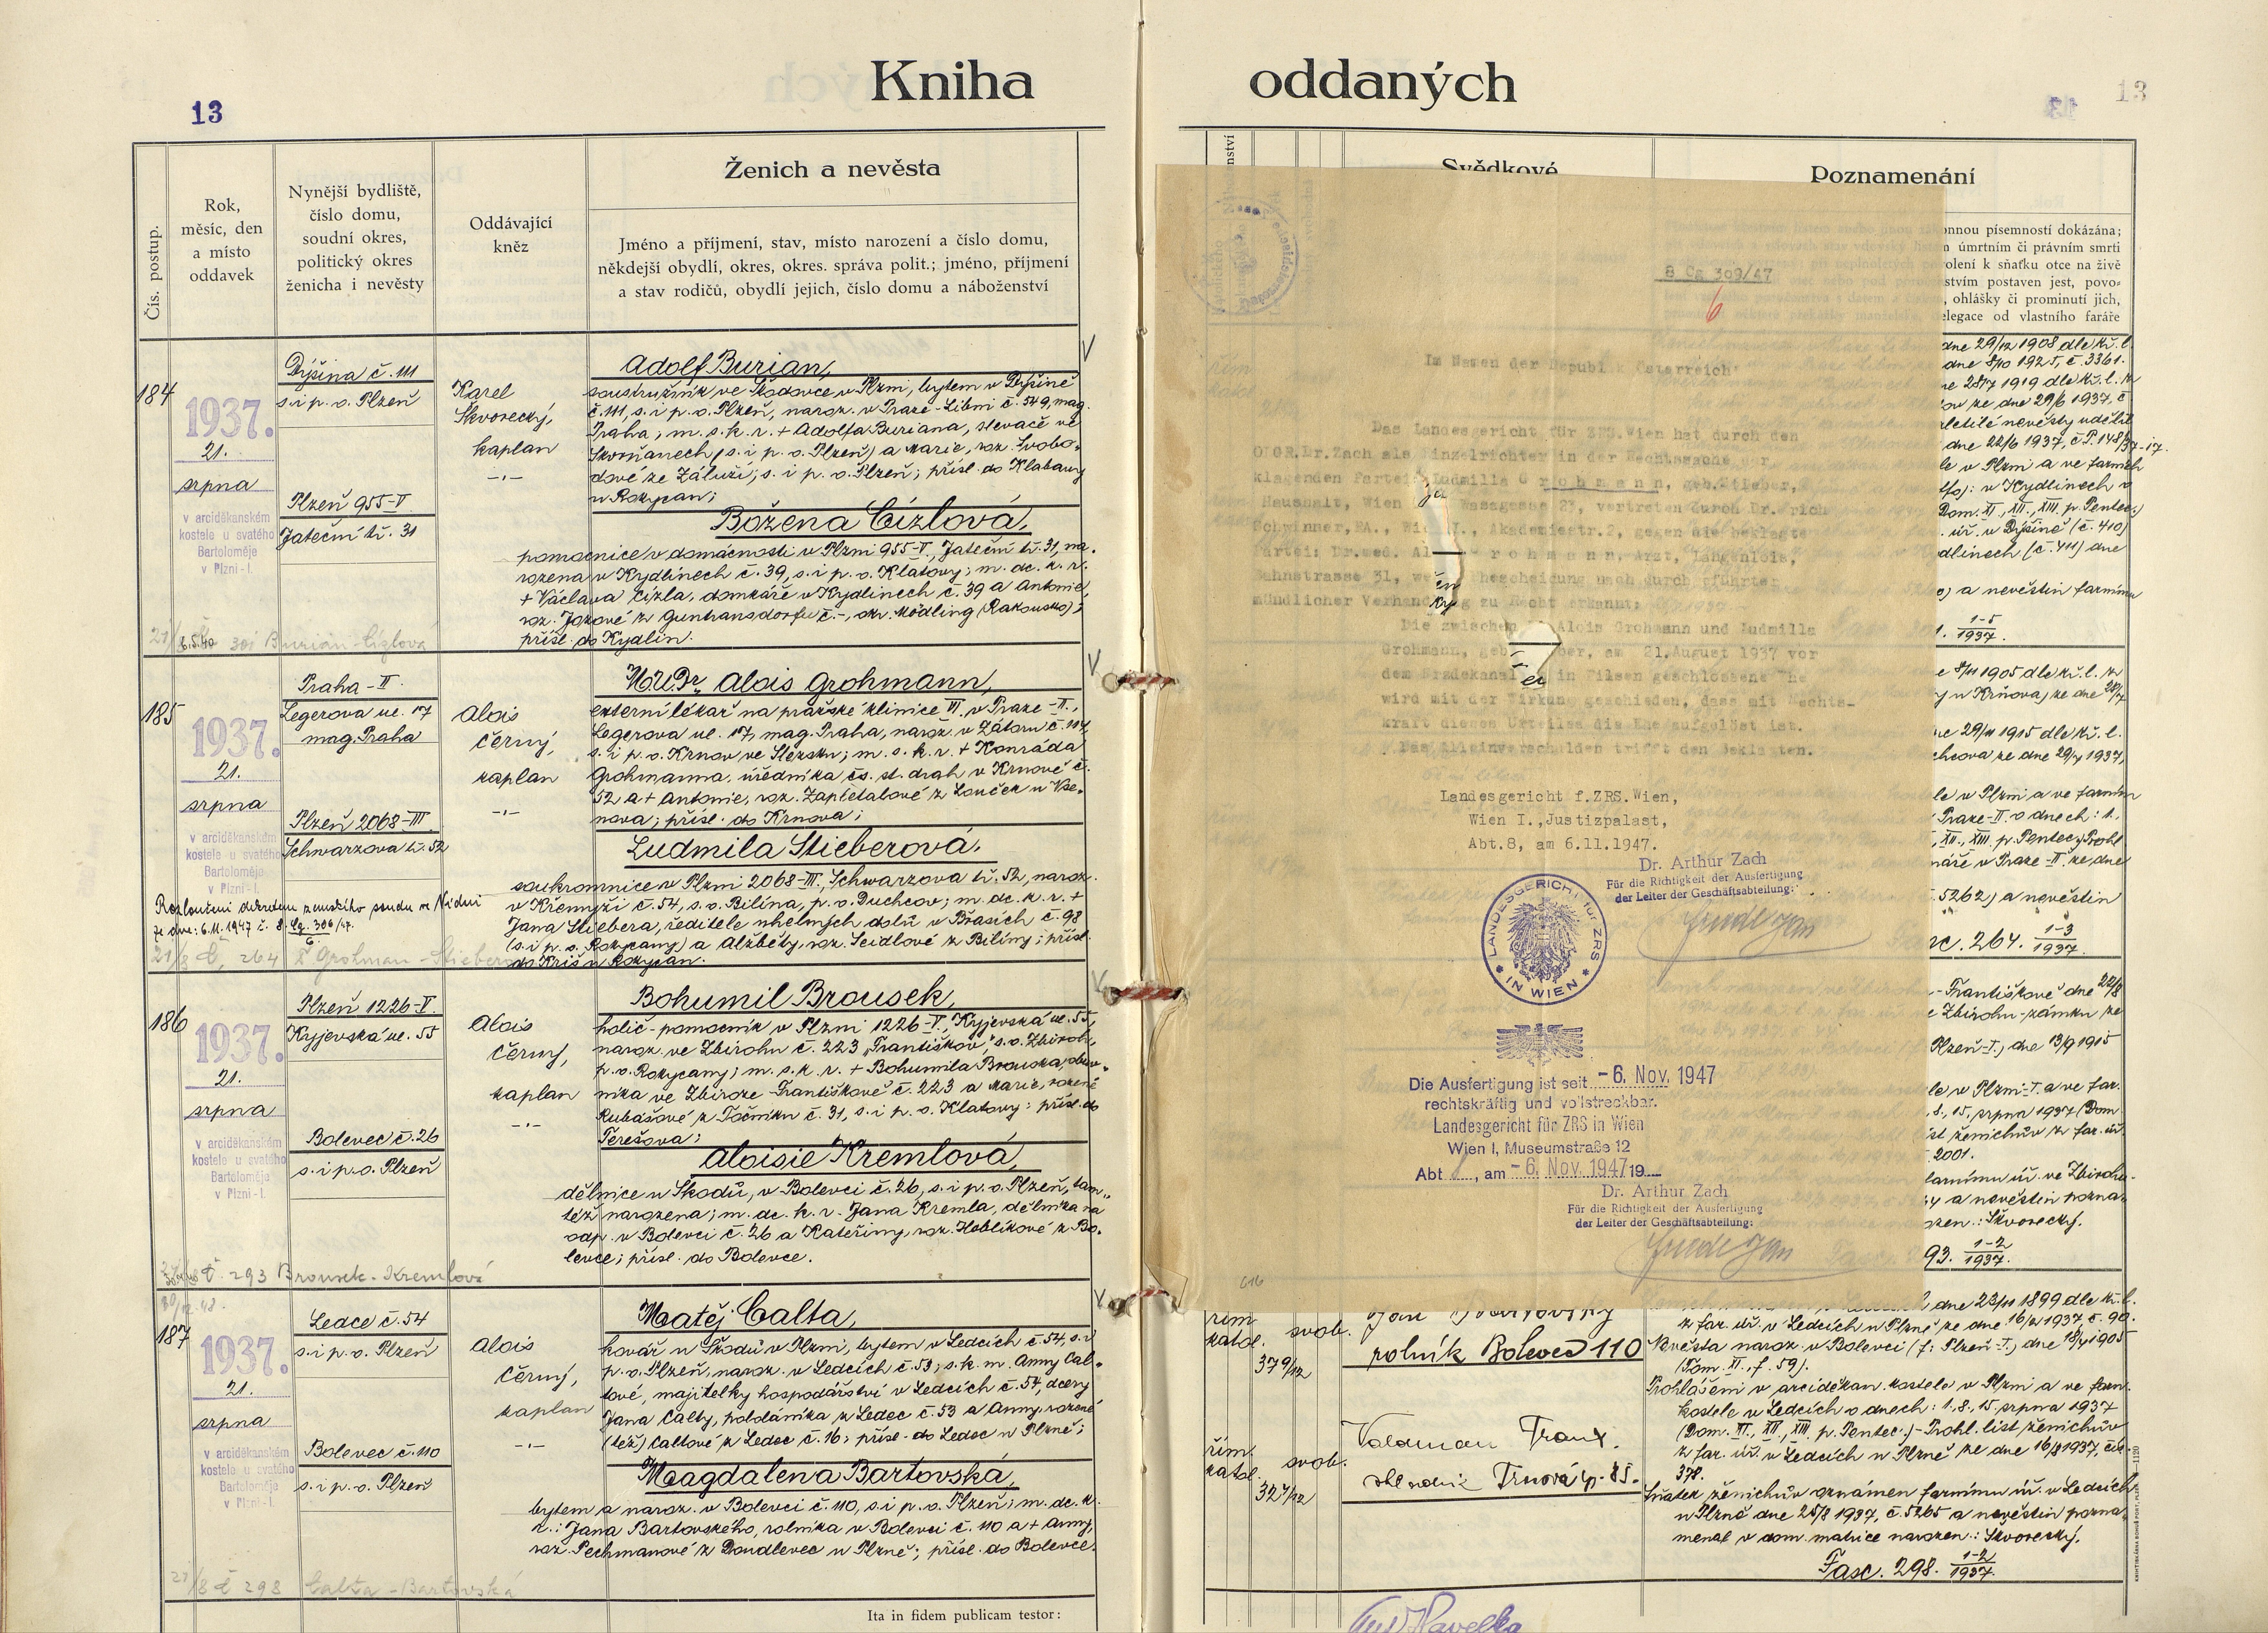 13
Kniha
Čís. postup.
Rok,
měsíc, den
a místo
oddavek
Nynější bydliště,
číslo domu,
soudní okres,
politický okres
ženicha i nevěsty
Oddávající
kněz
Ženich a nevěsta
Jméno a příjmení, stav, místo narození a číslo domu,
někdejší obydlí, okres, okres. správa polit.; jméno, příjmení
a stav rodičů, obydlí jejich, číslo domu a náboženství
184
1937.
21.
srpna
v arciděkanském
kostele u svatého
Bartoloměje
v Plzni-I.
Dýšina č. 111
s. i p. o. Plzeň
Plzeň 955-V
Jateční tř. 31
Karel
Škvorecký,
kaplan
Adolf Burian,
soustružník ve Škodovce v Plzni, bytem v Dýšině
č. 111, s. i p. o. Plzeň, naroz. v Praze-Libni č. 549, mag.
Praha; m. s. k. r. + Adolfa Buriana, slevače ve
Skvrňanech (s. i p. o. Plzeň) a Marie, roz. Svobo-
dové ze Záluží, s. i p. o. Plzeň; přísl. do Klabavy
u Rokycan;
Božena Cízlová,
pomocnice v domácnosti v Plzni 955-V, Jateční tř. 31, na-
rozena v Kydlinech č. 39, s. i p. o. Klatovy; m. dc. k. r.
+ Václava Cízla, domkáře v Kydlinech č. 39 a Antonie,
roz. Jozové z Guntransdorfu č. -, okr. Mödling (Rakousko);
přísl. do Kydlin.
Burian-Cízlová
185
1937.
21.
srpna
v arciděkanském
kostele u svatého
Bartoloměje
v Plzni-I.
Praha-II.
Legerova ul. 17
mag. Praha
Plzeň 2068-III
Schwarzova tř. 52
Alois
Černý,
kaplan
MUDr. Alois Grohmann,
externí lékař na pražské klinice VI. v Praze-II.,
Legerova ul. 17, mag. Praha, naroz. v Zátoru č. 114,
s. i p. o. Krnov ve Slezsku; m. s. k. r. + Konráda
Grohmanna, úředníka čs. st. drah v Krnově č.
52 a + Antonie, roz. Zapletalové z Louček u Vse-
nova; přísl. do Krnova;
Ludmila Stieberová,
soukromnice v Plzni 2068-III, Schwarzova tř. 52, naroz.
v Křemyži č. 54, s. o. Bílina, p. o. Duchcov; m. dc. k. r. +
Jana Stiebera, ředitele uhelných dolů v Břasích č. 98
(s. i p. o. Rokycany) a Alžběty, roz. Seidlové z Bíliny; přísl.
do Kříš u Rokycan.
Rozloučeni dekretem zemského soudu ve Vídni
ze dne: 6.11.1947 č. 8 Cg. 309/47.
6
264
Grohman-Stieberová
186
1937.
21.
srpna
v arciděkanském
kostele u svatého
Bartoloměje
v Plzni-I.
Plzeň 1226-V
Kyjevská ul. 55
Bolevec č. 26
s. i p. o. Plzeň
Alois
Černý,
kaplan
Bohumil Brousek,
holič-pomocník v Plzni 1226-V, Kyjevská ul. 55,
naroz. ve Zbirohu č. 223 „Františkov“, s. o. Zbiroh,
p. o. Rokycany; m. s. k. r. + Bohumila Brouska, obuv-
níka ve Zbiroze-Františkově č. 223 a Marie, rozené
Kubašové z Točníku č. 31, s. i p. o. Klatovy; přísl. do
Terešova;
Aloisie Kremlová,
dělnice u Škodů, v Bolevci č. 26, s. i p. o. Plzeň, tam-
též narozena; m. dc. k. r. Jana Kremla, dělníka na
odp. v Bolevci č. 26 a Kateřiny, roz. Heblíkové z Bo-
levce; přísl. do Bolevce.
293 Brousek-Kremlová
187
1937.
21.
srpna
v arciděkanském
kostele u svatého
Bartoloměje
v Plzni-I.
Ledce č. 54
s. i p. o. Plzeň
Bolevec č. 110
s. i p. o. Plzeň
Alois
Černý,
kaplan
Matěj Calta,
kovář u Škodů v Plzni, bytem v Ledcích č. 54, s. i
p. o. Plzeň, naroz. v Ledcích č. 53; s. k. m. Anny Cal-
tové, majitelky hospodářství v Ledcích č. 54, dcery
Jana Calty, poldáníka z Ledec č. 53 a Anny, rozené
(též) Caltové z Ledec č. 16; přísl. do Ledec u Plzně;
Magdalena Bartovská,
bytem a naroz. v Bolevci č. 110, s. i p. o. Plzeň; m. dc. k.
r.: Jana Bartovského, rolníka v Bolevci č. 110 a + Anny,
roz. Pechmanové z Doudlevec u Plzně; přísl. do Bolevce.
298 Calta-Bartovská
Ita in fidem publicam testor:
oddaných
13
Svědkové
Poznamenání
8 Cg 309/47
6
Im Namen der Republik Österreich!
Das Landesgericht für ZRS.Wien hat durch den
OLGR.Dr.Zach als Einzelrichter in der Rechtssache der
klagenden Partei: Ludmilla Grohmann, geb.Stieber,
Haushalt, Wien Wasagasse 23, vertreten durch Dr. rich
Schwinner, RA., Wien I., Akademiestr.2, gegen die beklagte
Partei: Dr.med. Al rohmann, Arzt, Langenlois,
Bahnstrasse 31, we Ehescheidung nach durchgeführter
mündlicher Verhandlung zu Recht erkannt:
Die zwischen Alois Grohmann und Ludmilla
Grohmann, geb ber, am 21.August 1937 vor
dem Erzdekanal in Pilsen geschlossene Ehe
wird mit der Wirkung geschieden, dass mit Rechts-
kraft dieses Urteiles die Ehe aufgelöst ist.
Das Alleinverschulden trifft den Beklagten.
Landesgericht f.ZRS.Wien,
Wien I.,Justizpalast,
Abt.8, am 6.11.1947.
Dr. Arthur Zach
Für die Richtigkeit der Ausfertigung
der Leiter der Geschäftsabteilung:
LANDESGERICHT für ZRS * IN WIEN *
Die Ausfertigung ist seit -6. Nov. 1947
rechtskräftig und vollstreckbar.
Landesgericht für ZRS in Wien
Wien I, Museumstraße 12
Abt , am -6. Nov. 1947 19
Dr. Arthur Zach
Für die Richtigkeit der Ausfertigung
der Leiter der Geschäftsabteilung:
onnou písemností dokázána;
n úmrtním či právním smrti
olení k sňatku otce na živě
stvím postaven jest, povo-
, ohlášky či prominutí jich,
elegace od vlastního faráře
dne 29/12 1908 dle kř. l.
dne 8/10 1925, č. 3361.
1919 dle kř. l. z
ze dne 29/6 1937, č.
zletilé nevěsty udělil
dne 22/6 1937, č. P. 148/37-17.
le v Plzni a ve farním
: v Kydlinech o
Dom. XI., XII., XIII. p. Pentec.)
úř. v Dýšině (č. 410)
dlinech (č. 411) dne
a nevěstin farnímu
1-5
1937.
1905 dle kř. l. z
u Krnova, ze dne
1915 dle kř. l.
chcova ze dne 29/7 1937,
le v Plzni a ve farním
Praze-II. o dnech: 1.,
XII., XIII. p. Pentec.) Prohl
v Praze-II. ze dne
5262) a nevěstin
sc. 264. 1-3
1937.
-Františkově dne 22/8
Zbirohu-zámku ze
Plzeň-I.) dne 13/9 1915
le v Plzni-I. a ve far.
8., 15. srpna 1937 (Dom
st ženichův z far. úř.
2001.
farnímu úř. ve Zbirohu
a nevěstin pozna-
: Škvorecký.
93. 1-2
1937.
řím.
katol.
svob.
37 9/12
rolník Bolevec 110
řím.
katol.
svob.
32 7/12
Valdman Frant.
Trnová čp. 85.
dne 23/11 1899 dle kř. l.
z far. úř. v Ledcích u Plzně ze dne 16/8 1937 č. 90.
Nevěsta naroz. v Bolevci (f: Plzeň-I.) dne 18/7 1905
(Tom. XI., f. 59).
Prohlášeni v arciděkan. kostele v Plzni a ve farn.
kostele v Ledcích o dnech: 1., 8., 15. srpna 1937
(Dom. XI., XII., XIII. p. Pentec.)-Prohl. list ženichův
z far. úř. v Ledcích u Plzně ze dne 16/8 1937, čís.
378.
Sňatek ženichův oznámen farnímu úř. v Ledcích
u Plzně dne 25/8 1937, č. 5265 a nevěstin pozna-
menal v dom. matrice narozen.: Škvorecký.
Fasc. 298. 1-2
1937.
Havelka